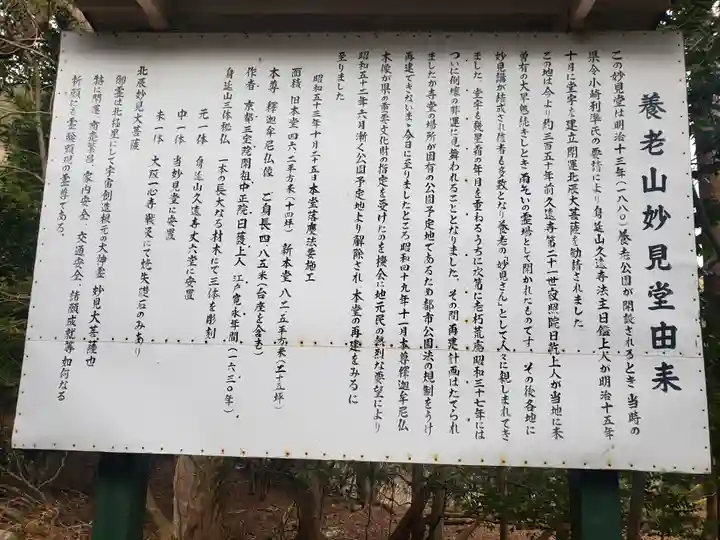 養老山妙見堂由来
この妙見堂は明治十三年(一八八〇)養老公園が開設されるとき、当時の
県令小崎利準氏の要請により身延山久遠寺法主日鑑上人が明治十五年
十月に堂宇を建立開運北辰大菩薩を勧請されました
この地は今より約三百五十年前久遠寺第二十一世寂照院日乾上人が当地に来
曽有の大旱魃続きしとき雨乞いの霊場として開かれたものです。その後各地に
妙見講が結成され信者も多数となり養老の「妙見さん」として人々に親しまれてき
ました。堂宇も幾星霜の年月を重ねるうちに次第に老朽荒廃昭和三十七年には
ついに倒壊の非運に見舞われることとなりました。その間再建計画はたてられ
ましたが寺堂の場所が国有の公園予定地であるため都市公園法の規制をうけ
再建できないまゝ今日に至りましたところ昭和四十九年十一月本尊釋迦牟尼仏
木像が県の重要文化財の指定を受けたのを機会に地元民の熱烈な要望により
昭和五十二年六月漸く公園予定地より解除され、本堂の再建をみるに
至りました
昭和五十三年十月二十五日本堂落慶法要施工
面積 旧本堂 四六.二平方米(十四坪) 新本堂 八二.五平方米(二十五坪)
本尊 釋迦牟尼仏像 ご身長四.八五米(台座を含む)
作者 京都三宝院開祖中正院日護上人 江戸寛永年間(一六三〇年)
身延山三体秘仏 一本の長大なる材木にて三体を彫刻
元一体 身延山久遠寺丈六堂に安置
中一体 当妙見堂に安置
末一体 大阪一心寺 戦災にて焼失礎石のみあり
北辰妙見大菩薩
御霊は北極星にして宇宙創造根元の大神霊 妙見大菩薩也
特に開運、商売繁昌、家内安全、交通安全、諸願成就等如何なる
祈願にも霊験顕現の霊尊である。